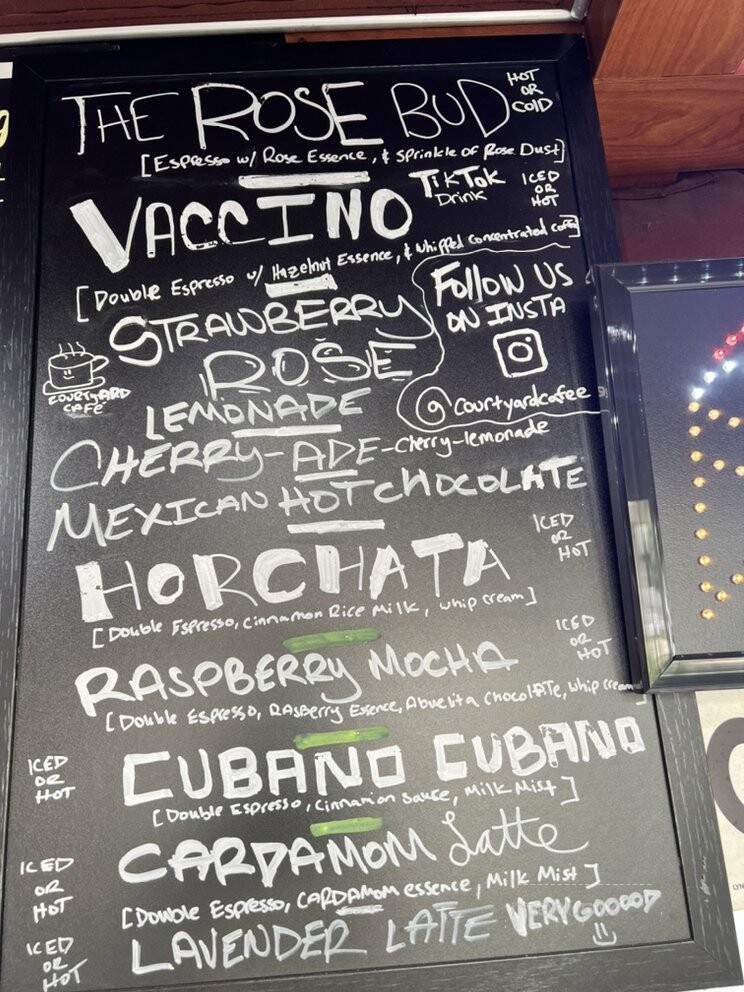 THE ROSE BUD HOT OR COLD
[Espresso w/ Rose Essence, & Sprinkle of Rose Dust]
VACCINO TikTok Drink ICED OR HOT
[Double Espresso w/ Hazelnut Essence, & whipped concentrated coffee]
STRAWBERRY
ROSE
LEMONADE
COURTYARD
CAFE
FOLLOW US
ON INSTA
@courtyardcafee
CHERRY-ADE-cherry-lemonade
MEXICAN HOT CHOCOLATE
HORCHATA ICED OR HOT
[Double Espresso, Cinnamon Rice Milk, whip cream]
RASPBERRY MOCHA ICED OR HOT
[Double Espresso, RASBerry Essence, Abuelita chocolATe, whip cream]
ICED OR HOT CUBANO CUBANO
[Double Espresso, Cinnamon sauce, Milk Mist]
ICED OR HOT CARDAMOM Latte
[Double Espresso, CARDAMOM essence, Milk Mist]
ICED OR HOT LAVENDER LATTE VERY GOOOOD